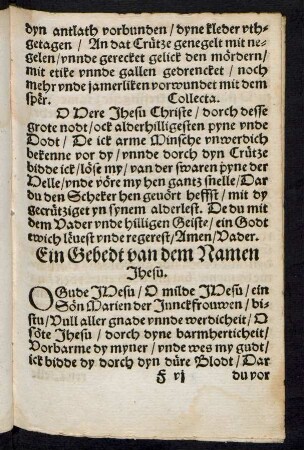 dyn antlath vorbunden / dyne kleder vth-
getagen / An dat Crütze genegelt mit ne-
gelen / vnnde gerecket gelick den mördern /
mit etike vnnde gallen gedrencket / noch
mehr vnde jamerliken vorwundet mit dem
spër. Collecta.
O Here Jhesu Christe / dorch desse
grote nodt / ock alderhilligesten pyne vnde
Dodt / De ick arme Minsche vnwerdich
bekenne vor dy / vnnde dorch dyn Crütze
bidde ick / löse my / van der swaren pyne der
Helle / vnde vöre my hen gantz snelle / Dar
du den Scheker hen geuört heffst / mit dy
gecrütziget yn synem alderlest. De du mit
dem Vader vnde hilligen Geiste / ein Godt
ewich leuest vnde regerest / Amen / Vader.
Ein Gebedt van dem Namen
Jhesü.
O Gude JHesu / O milde JHesu / ein
Sön Marien der Junckfrouwen / bi-
stu / Vull aller gnade vnnde werdicheit / O
söte Jhesu / dorch dyne barmherticheit /
Vorbarme dy myner / vnde wes my gudt /
ick bidde dy dorch dyn düre Blodt / Dar
F vj du vor